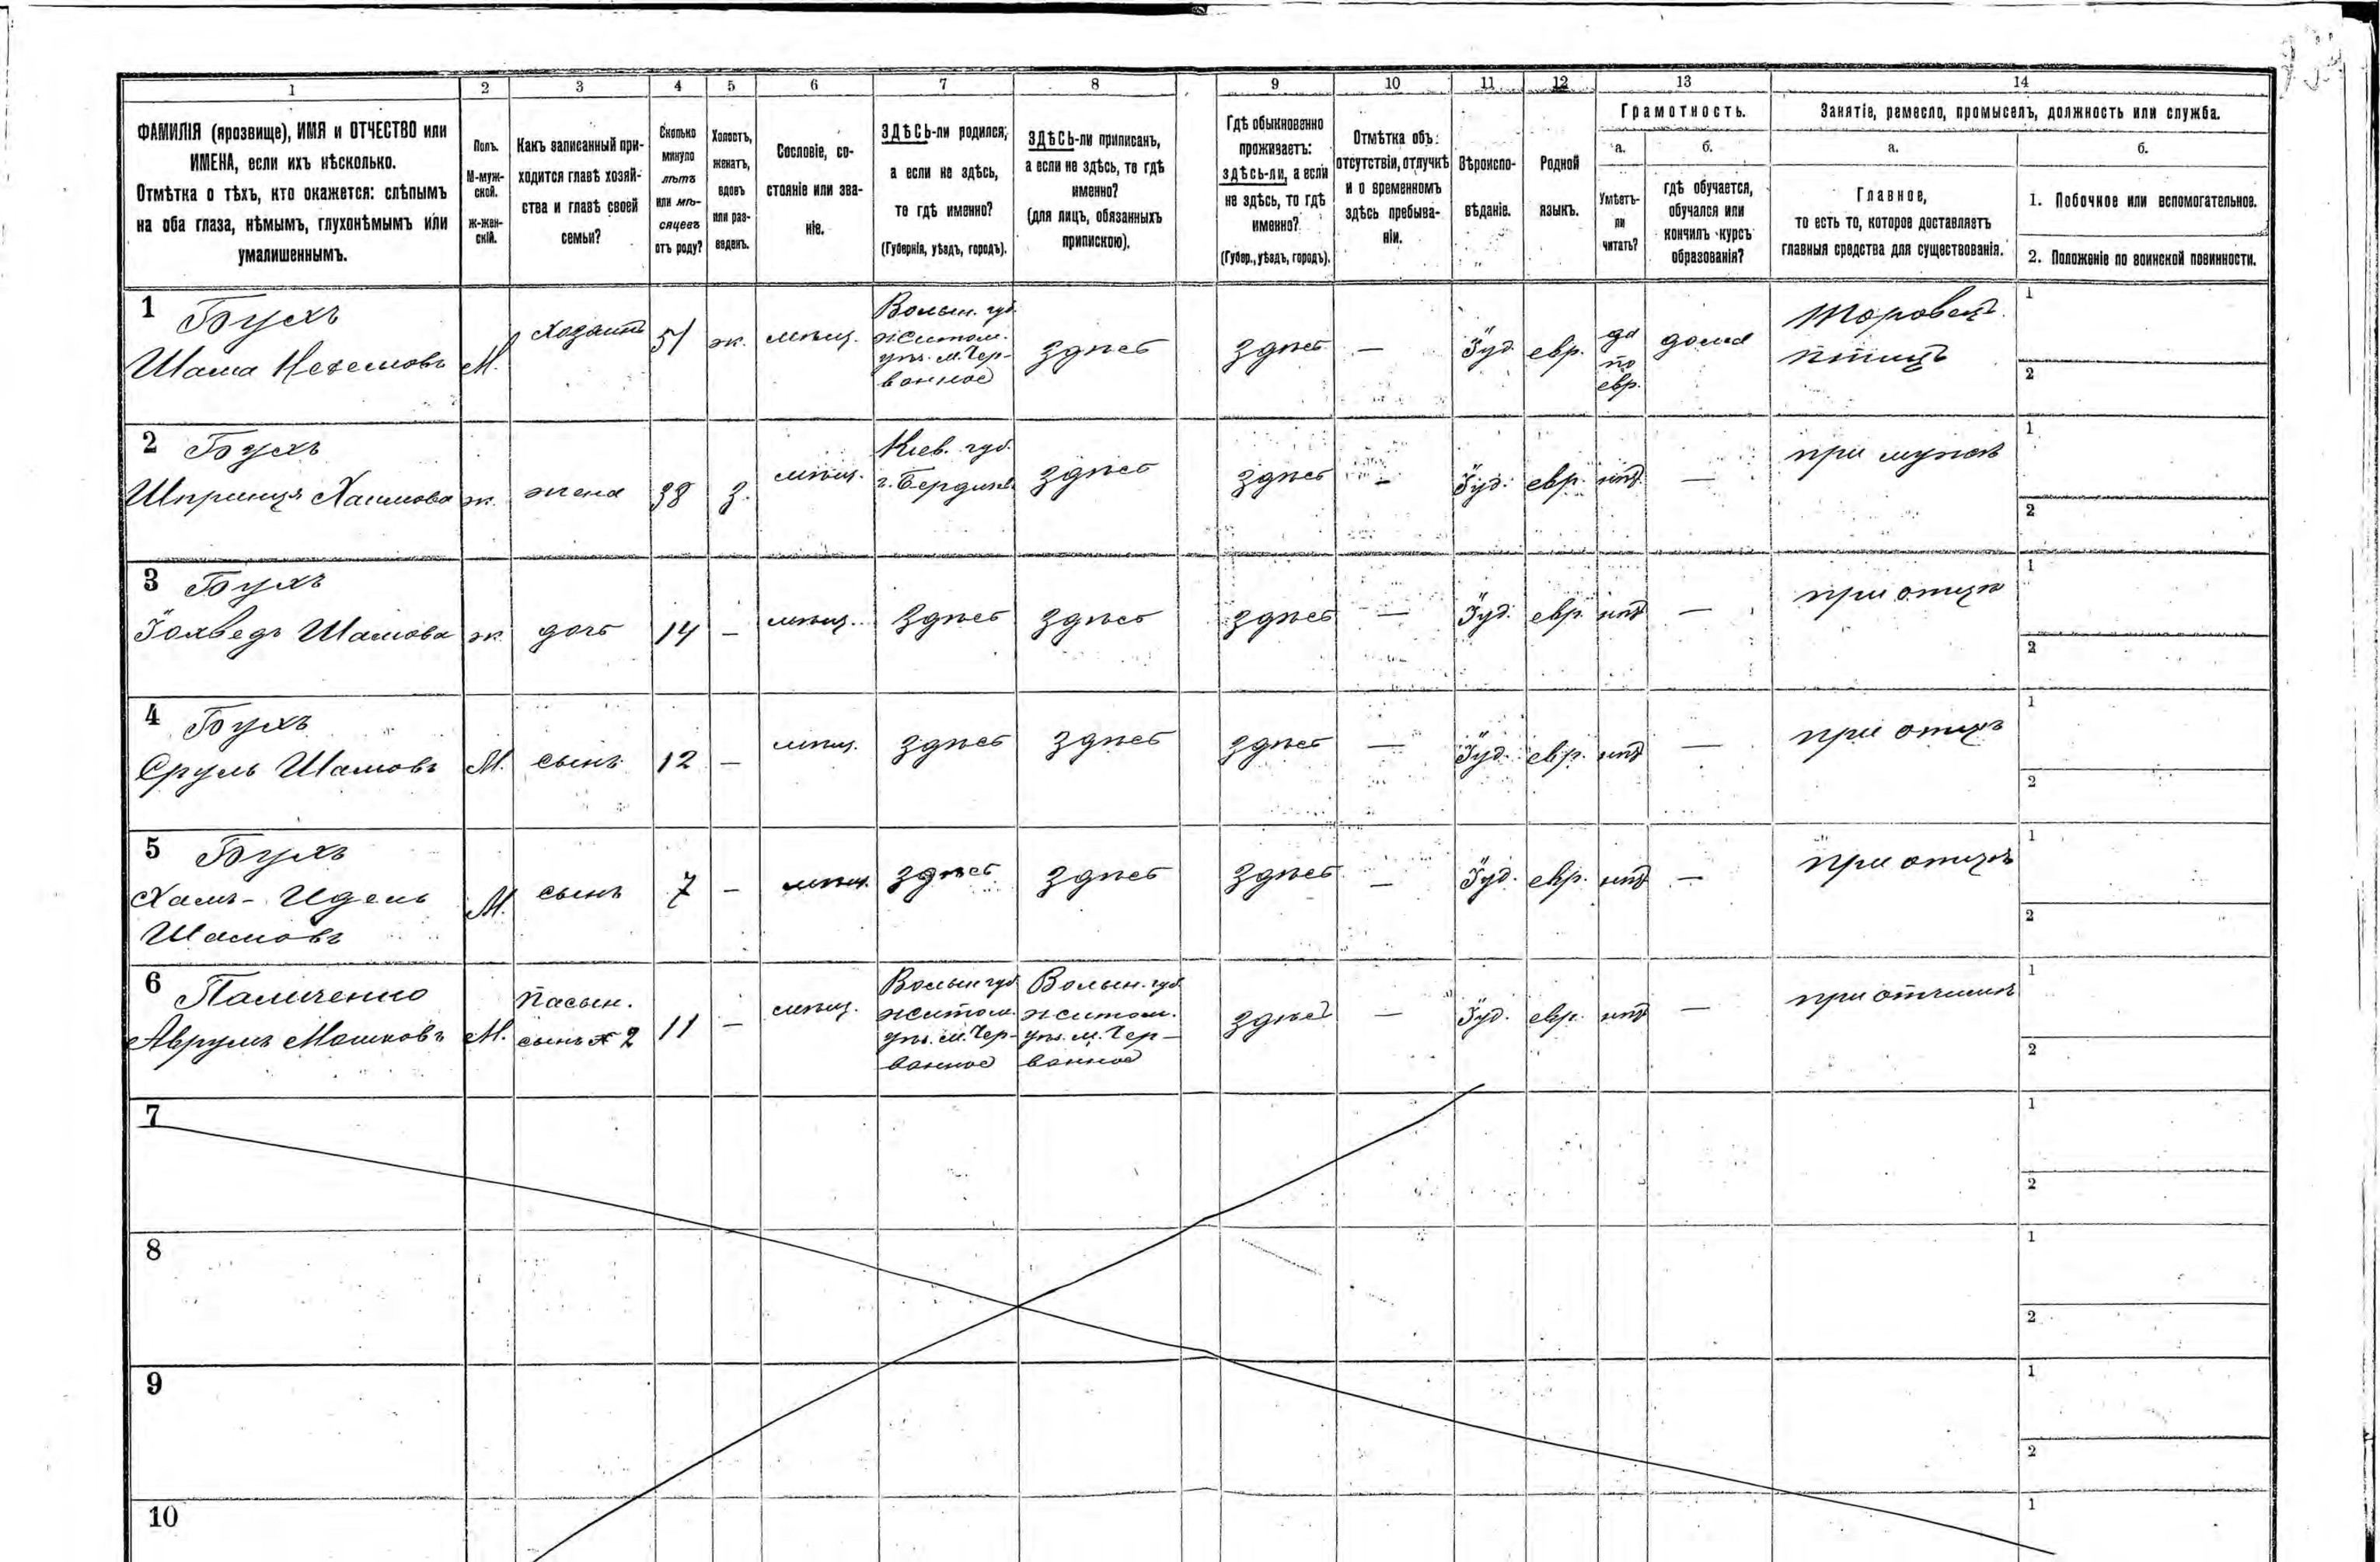 1 2 3 4 5 6 7 8 9 10 11 12 13 14
ФАМИЛІЯ (прозвище), ИМЯ и ОТЧЕСТВО или
ИМЕНА, если ихъ нѣсколько.
Отмѣтка о тѣхъ, кто окажется: слѣпымъ
на оба глаза, нѣмымъ, глухонѣмымъ или
умалишеннымъ.
Полъ.
М-муж-
ской.
Ж-жен-
скій.
Какъ записанный при-
ходится главѣ хозяй-
ства и главѣ своей
семьи?
Сколько
минуло
лѣтъ
или мѣ-
сяцевъ
отъ роду?
Холостъ,
женатъ,
вдовъ
или раз-
веденъ.
Сословіе, со-
стояніе или зва-
ніе.
ЗДѢСЬ-ли родился,
а если не здѣсь,
то гдѣ именно?
(Губернія, уѣздъ, городъ).
ЗДѢСЬ-ли приписанъ,
а если не здѣсь, то гдѣ
именно?
(для лицъ, обязанныхъ
припискою).
Гдѣ обыкновенно
проживаетъ:
здѣсь-ли, а если
не здѣсь, то гдѣ
именно?
(Губер., уѣздъ, городъ).
Отмѣтка объ
отсутствіи, отлучкѣ
и о временномъ
здѣсь пребыва-
ніи.
Вѣроиспо-
вѣданіе.
Родной
языкъ.
Грамотность.
а.
Умѣетъ-
ли
читать?
б.
гдѣ обучается,
обучался или
кончилъ курсъ
образованія?
Занятіе, ремесло, промыселъ, должность или служба.
а.
Главное,
то есть то, которое доставляетъ
главныя средства для существованія.
б.
1. Побочное или вспомогательное.
2. Положеніе по воинской повинности.
1 Бухъ
Шама М.
Хозяинъ
51 ж. мѣщ.
Волын. губ.
житом.
уѣз. м. Чер-
вонное
здѣсь здѣсь — Іуд. евр.
да
по
евр.
дома
Торовецъ
птицъ
1
2
2 Бухъ
Шпринця Хаимова ж. жена 38 З. мѣщ.
Кіев. губ.
г. Бердичев
здѣсь здѣсь — Іуд. евр. нѣт —
при мужѣ
1
2
3 Бухъ
Іохведъ Шамова ж. дочь 14 — мѣщ. здѣсь здѣсь здѣсь — Іуд. евр. нѣт —
при отцѣ
1
2
4 Бухъ
Сруль Шамовъ М. сынъ 12 — мѣщ. здѣсь здѣсь здѣсь — Іуд. евр. нѣт —
при отцѣ
1
2
5 Бухъ
Хаимъ-Идель
Шамовъ
М. сынъ 7 — мѣщ. здѣсь здѣсь здѣсь — Іуд. евр. нѣт —
при отцѣ
1
2
6 Паличенко
Аврумъ Мошковъ М.
пасын.
сынъ № 2
11 — мѣщ.
Волын губ
житом.
уѣз. м. Чер-
вонное
Волын. губ
житом.
уѣз. м. Чер-
вонное
здѣсь — Іуд. евр. нѣт —
при отчимѣ
1
2
7
1
2
8
1
2
9
1
2
10
1